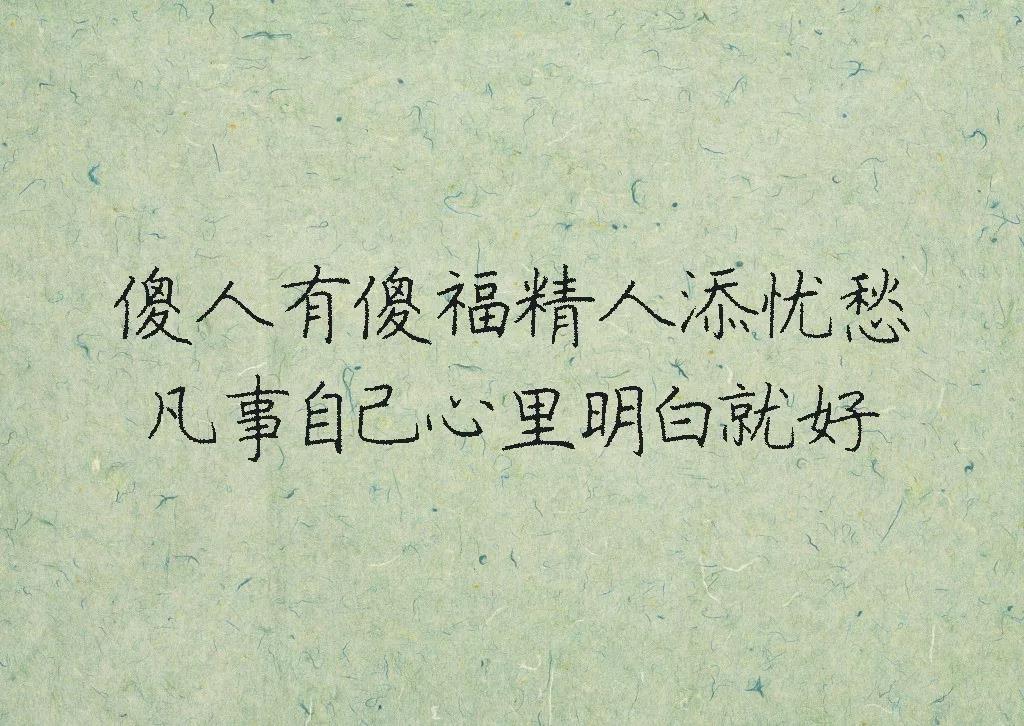 傻人有傻福精人添忧愁
凡事自己心里明白就好